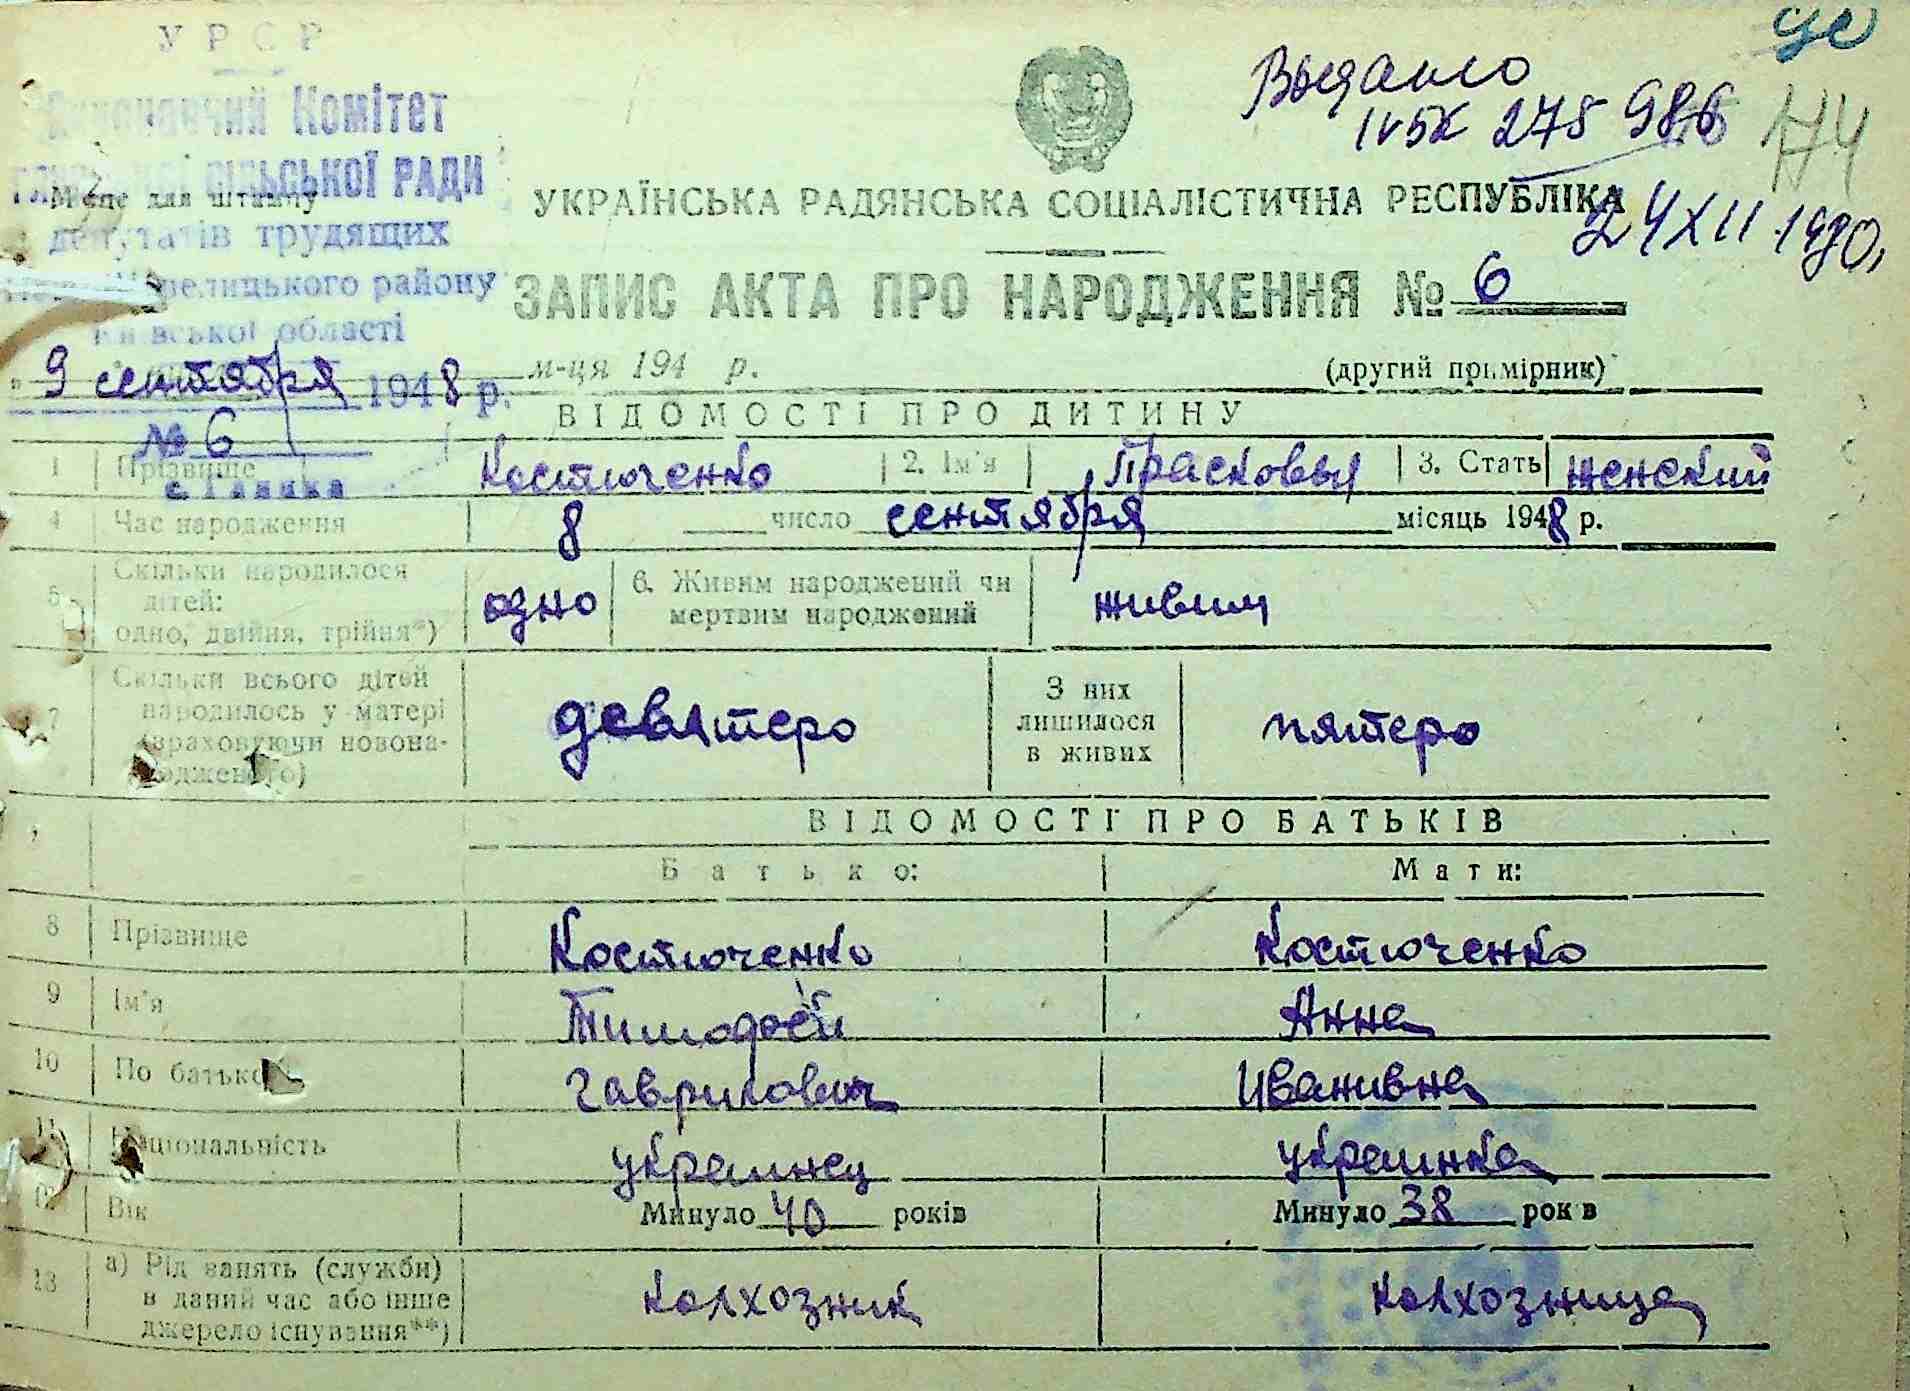 УРСР
Виконавчий Комітет
СІЛЬСЬКОЇ РАДИ
Місце для штампу
депутатів трудящих
району
Київської області
9 сентября 1948 р.
№ 6
с. Галики
Выдано
IV БК 275 986
24 XII 1980,
174
УКРАЇНСЬКА РАДЯНСЬКА СОЦІАЛІСТИЧНА РЕСПУБЛІКА
ЗАПИС АКТА ПРО НАРОДЖЕННЯ № 6
м-ця 194 р. (другий примірник)
ВІДОМОСТІ ПРО ДИТИНУ
1 Прізвище Костюченко 2. Ім'я Прасковья 3. Стать женский
4 Час народження 8 число сентября місяць 1948 р.
5 Скільки народилося
дітей:
одно, двійня, трійня*) одно 6. Живим народжений чи
мертвим народжений живим
7 Скільки всього дітей
народилось у матері
(враховуючи новона-
родженого) девятеро З них
лишилося
в живих пятеро
ВІДОМОСТІ ПРО БАТЬКІВ
Батько: Мати:
8 Прізвище Костюченко Костюченко
9 Ім'я Тимофей Анна
10 По батькові Гаврилович Иванивна
11 Національність украинец украинка
12 Вік Минуло 40 років Минуло 38 років
13 а) Рід занять (служби)
в даний час або інше
джерело існування**) колхозник колхозница